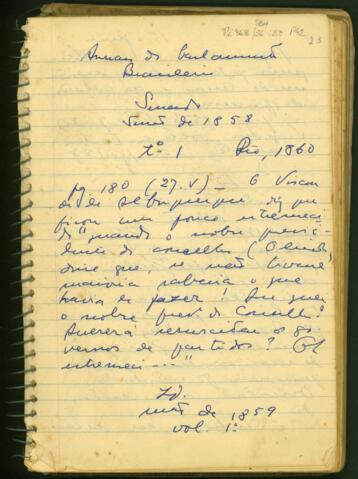 Annaes do Parlamento
Brasileiro
Senado
Sessão de 1858
tº 1 Rio, 1860
pg. 180 (27.V) — O Viscon
de de Albuquerque diz que
ficou um pouco estremeci
do "quando o nobre presi
dente do conselho (Olinda)
disse que, se não tivesse
maioria saberia o que
havia de fazer! Que quer
o nobre pres. do Conselho?
Quererá ressuscitar os go
vernos de partidos?
estremeci..."
Id.
de 1859
vol. 1º